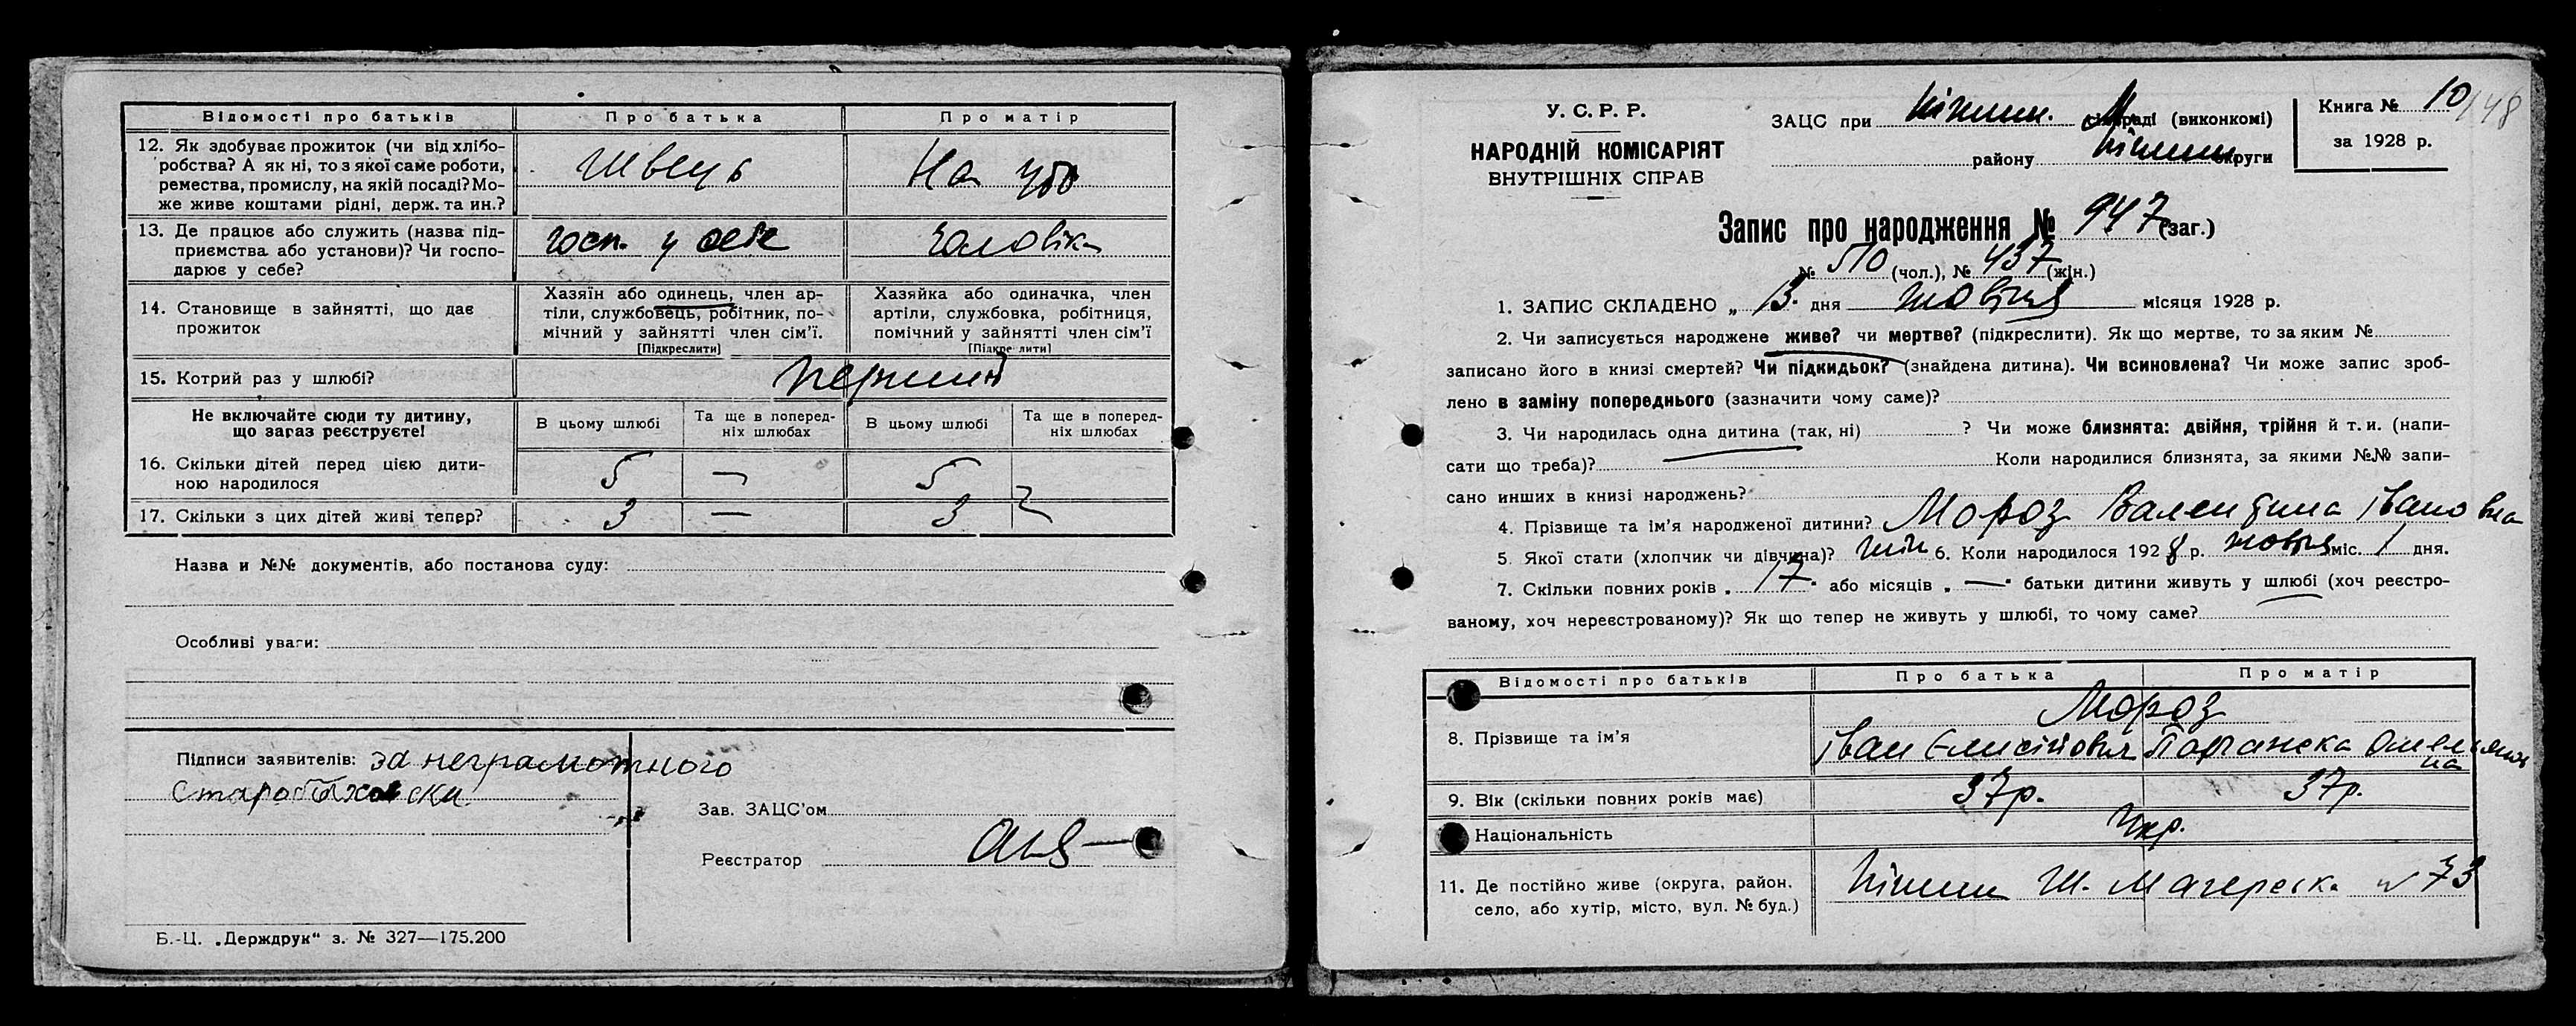 Відомості про батьків
Про батька
Про матір
12. Як здобуває прожиток (чи від хлібо-
робства? А як ні, то з якої саме роботи,
ремества, промислу, на якій посаді? Мо-
же живе коштами рідні, держ. та ин.?
Швець
На утр
13. Де працює або служить (назва під-
приємства або установи)? Чи госпо-
дарює у себе?
госп. у себе
чоловіка
14. Становище в зайнятті, що дає
прожиток
Хазяїн або одинець, член ар-
тіли, службовець, робітник, по-
мічний у зайнятті член сім'ї.
[Підкреслити]
Хазяйка або одиначка, член
артіли, службовка, робітниця,
помічний у зайнятті член сім'ї
[Підкре лити]
15. Котрий раз у шлюбі?
перший
Не включайте сюди ту дитину,
що зараз реєструєте!
В цьому шлюбі
Та ще в поперед-
ніх шлюбах
В цьому шлюбі
Та ще в поперед-
ніх шлюбах
16. Скільки дітей перед цією дити-
ною народилося
5 — 5
17. Скільки з цих дітей живі тепер?
3 — 3
Назва и №№ документів, або постанова суду:
Особливі уваги:
Підписи заявителів: за неграмотного
Зав. ЗАЦС'ом
Реєстратор
Б.-Ц. „Держдрук" з. № 327—175.200
У. С. Р. Р.
НАРОДНІЙ КОМІСАРІЯТ
ВНУТРІШНІХ СПРАВ
ЗАЦС при Ніжин. М. сільраді (виконкомі)
району Ніжин округи
Книга № 10/148
за 1928 р.
Запис про народження № 947 (заг.)
№ 510 (чол.), № 437 (жін.)
1. ЗАПИС СКЛАДЕНО „ 13. дня жовтня місяця 1928 р.
2. Чи записується народжене живе? чи мертве? (підкреслити). Як що мертве, то за яким №
записано його в книзі смертей? Чи підкидьок? (знайдена дитина). Чи всиновлена? Чи може запис зроб-
лено в заміну попереднього (зазначити чому саме)?
3. Чи народилась одна дитина (так, ні) ? Чи може близнята: двійня, трійня й т. и. (напи-
сати що треба)? Коли народилися близнята, за якими №№ запи-
сано инших в книзі народжень?
4. Прізвище та ім'я народженої дитини? Мороз Валентина Івановна
5. Якої стати (хлопчик чи дівчина)? жін 6. Коли народилося 1928 р. жовтня міс. 1 дня.
7. Скільки повних років „ 17 " або місяців „ — " батьки дитини живуть у шлюбі (хоч реєстро-
ваному, хоч нереєстрованому)? Як що тепер не живуть у шлюбі, то чому саме?
Відомості про батьків
Про батька
Про матір
8. Прізвище та ім'я
Мороз
Іван Єлисійович
9. Вік (скільки повних років має)
37р.
37р.
Національність
Укр.
11. Де постійно живе (округа, район.
село, або хутір, місто, вул. № буд.)
Ніжин Ш. Магерська № 73